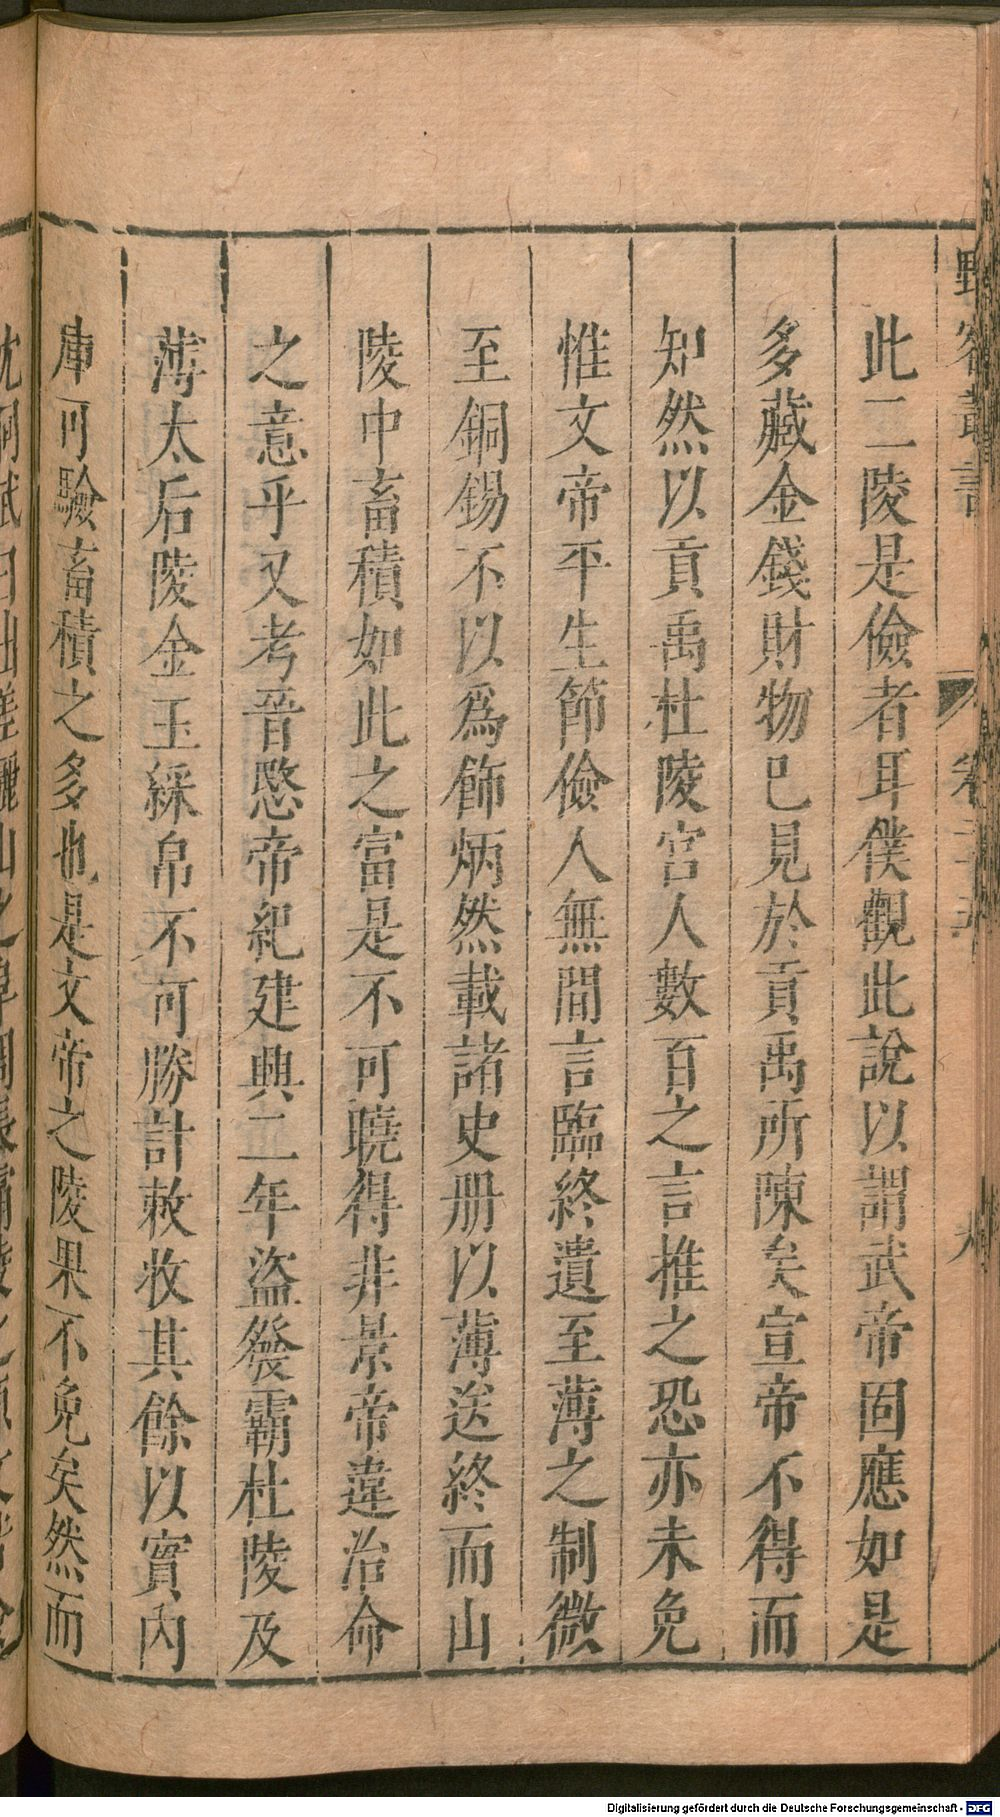 野客叢書
卷二十五
九
此二陵是儉者耳僕觀此說以謂武帝固應如是
多藏金錢財物已見於貢禹所陳矣宣帝不得而
知然以貢禹杜陵宮人數百之言推之恐亦未免
惟文帝平生節儉人無間言臨終遺至薄之制微
至銅錫不以爲飾炳然載諸史册以薄送終而山
陵中畜積如此之富是不可曉得非景帝違治命
之意乎又考晉愍帝紀建興二年盜發霸杜陵及
薄太后陵金玉綵帛不可勝計敕收其餘以實內
庫可驗畜積之多也是文帝之陵果不免矣然而
Digitalisierung gefördert durch die Deutsche Forschungsgemeinschaft - DFG